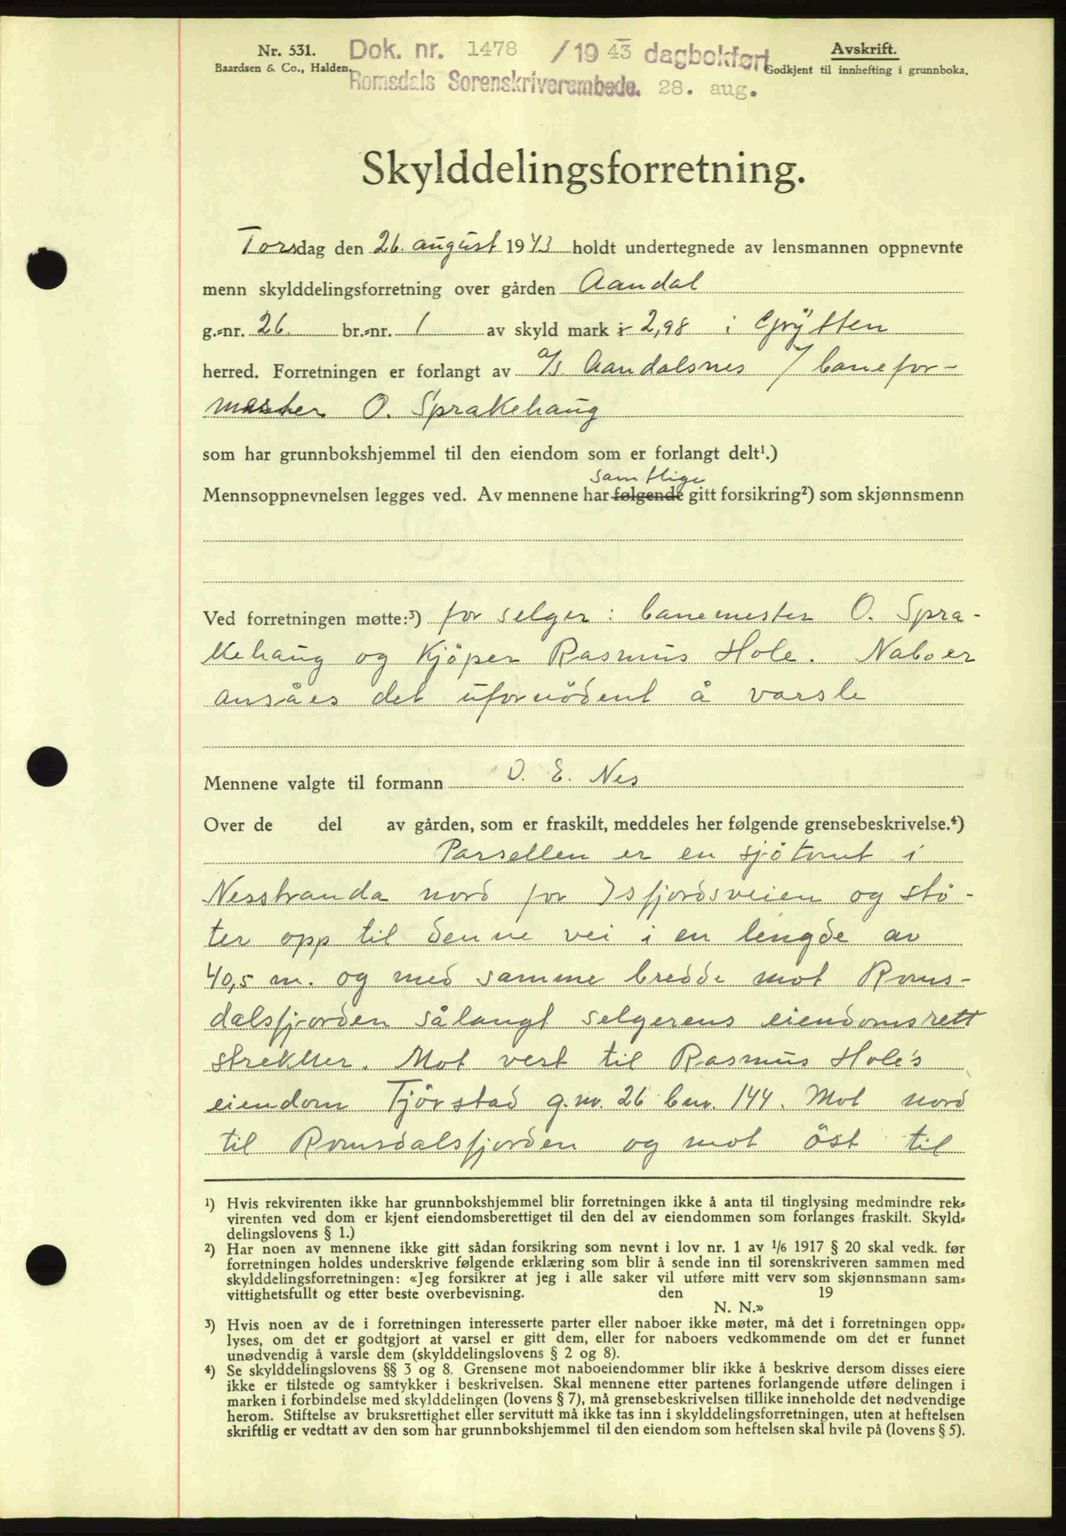 Nr. 531.
Baardsen & Co., Halden.
Dok. nr. 1478 /19 43 dagbokført
Romsdals Sorenskriverembede. 28. aug.
Avskrift.
Godkjent til innhefting i grunnboka.
Skylddelingsforretning.
Torsdag den 26. august 1943 holdt undertegnede av lensmannen oppnevnte
menn skylddelingsforretning over gården Aandal
g.-nr. 26 br.-nr. 1 av skyld mark 2,98 i Grytten
herred. Forretningen er forlangt av a/s Aandalsnes v/ banefor-
mester O. Sprakehaug
som har grunnbokshjemmel til den eiendom som er forlangt delt¹.)
samtlige
Mennsoppnevnelsen legges ved. Av mennene har følgende gitt forsikring²) som skjønnsmenn
Ved forretningen møtte:³) for selger: banemester O. Spra-
kehaug og kjöper Rasmus Hole. Naboer
ansåes det ufornödent å varsle
Mennene valgte til formann O. E. Nes
Over de del av gården, som er fraskilt, meddeles her følgende grensebeskrivelse.⁴)
Parsellen er en sjötomt i
Nesstranda nord for Isfjordsveien og stö-
ter opp til denne vei i en lengde av
40,5 m. og med samme bredde mot Roms-
dalsfjorden sålangt selgerens eiendomsrett
strekker. Mot vest til Rasmus Hole's
eiendom Tjörstad g.nr. 26 bnr. 144. Mot nord
til Romsdalsfjorden og mot öst til
¹) Hvis rekvirenten ikke har grunnbokshjemmel blir forretningen ikke å anta til tinglysing medmindre rek-
virenten ved dom er kjent eiendomsberettiget til den del av eiendommen som forlanges fraskilt. Skyld-
delingslovens § 1.)
²) Har noen av mennene ikke gitt sådan forsikring som nevnt i lov nr. 1 av ¹/₆ 1917 § 20 skal vedk. før
forretningen holdes underskrive følgende erklæring som blir å sende inn til sorenskriveren sammen med
skylddelingsforretningen: «Jeg forsikrer at jeg i alle saker vil utføre mitt verv som skjønnsmann sam-
vittighetsfullt og etter beste overbevisning. den 19
N. N.»
³) Hvis noen av de i forretningen interesserte parter eller naboer ikke møter, må det i forretningen opp-
lyses, om det er godtgjort at varsel er gitt dem, eller for naboers vedkommende om det er funnet
unødvendig å varsle dem (skylddelingslovens § 2 og 8).
⁴) Se skylddelingslovens §§ 3 og 8. Grensene mot naboeiendommer blir ikke å beskrive dersom disses eiere
ikke er tilstede og samtykker i beskrivelsen. Skal mennene etter partenes forlangende utføre delingen i
marken i forbindelse med skylddelingen (lovens § 7), må grensebeskrivelsen tillike inneholde det nødvendige
herom. Stiftelse av bruksrettighet eller servitutt må ikke tas inn i skylddelingsforretningen, uten at heftelsen
skriftlig er vedtatt av den som har grunnbokshjemmel til den eiendom som heftelsen skal hvile på (lovens § 5).